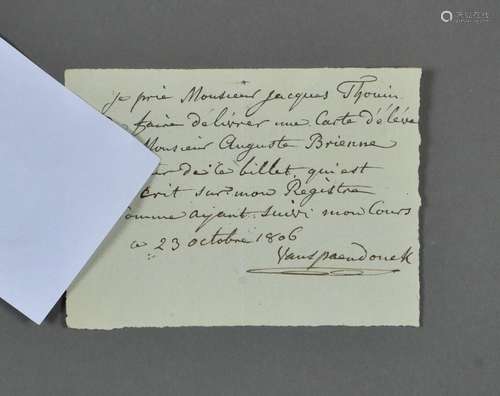 je prie Monsieur Jacques Thouin
faire délivrer une Carte d'élève
Monsieur Auguste Brienne
de ce billet, qui est
crit sur mon Registre
omme ayant suivi mon Cours
ce 23 octobre 1806
Vanspaendonck